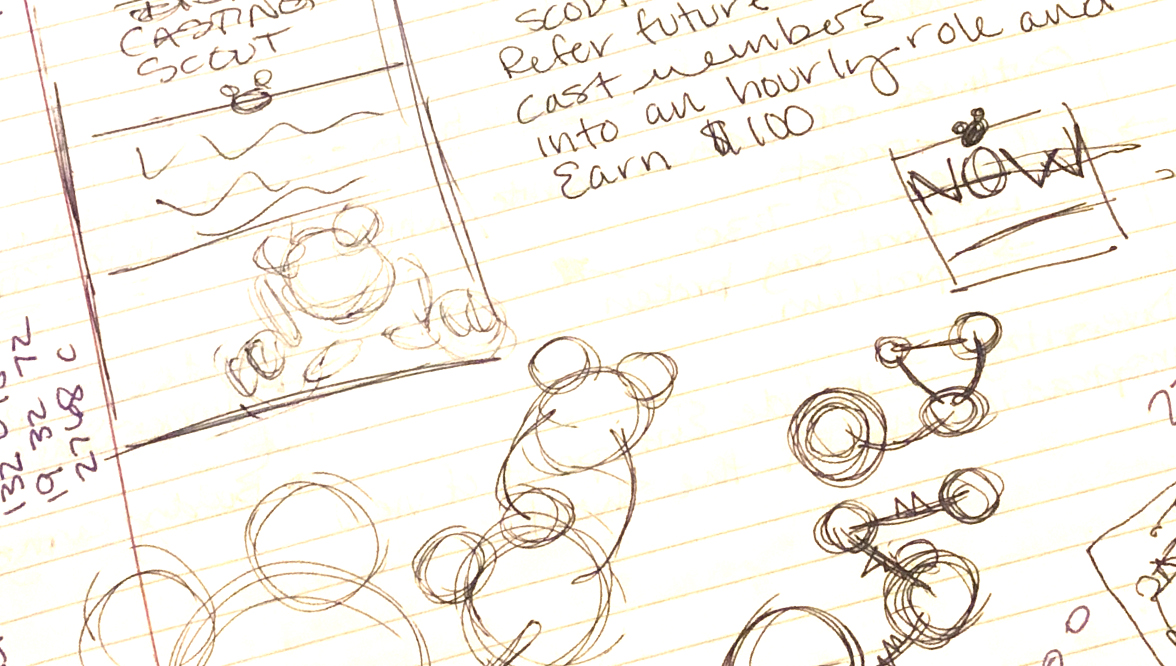 CASTING
SCOUT
Refer future
cast members
into an hourly role and
Earn $100
NOW
72
132
19 32
2768 C